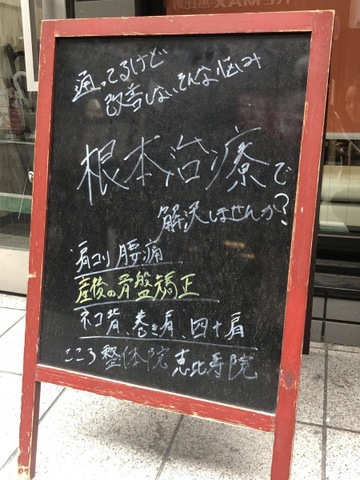 通ってるけど
改善しない、そんな悩み
根本治療で
解決しませんか?
肩コリ 腰痛
産後の骨盤矯正
ネコ背、巻き肩、四十肩
こころ整体院 恵比寿院